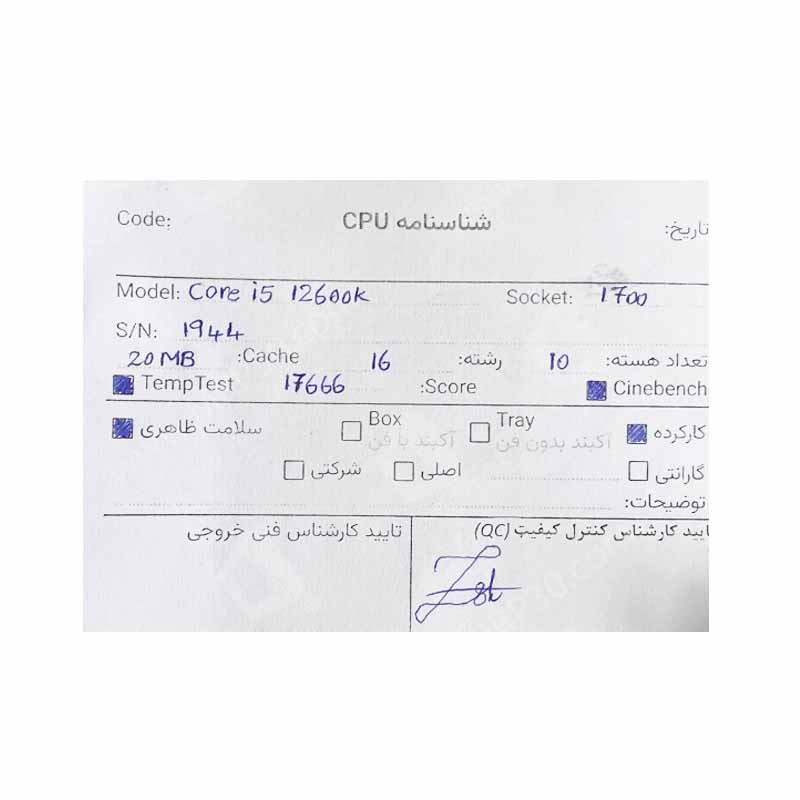 Code: شناسنامه CPU تاریخ:
Model: Core i5 12600k Socket: 1700
S/N: 1944
تعداد هسته: 10 رشته: 16 Cache: 20 MB
Cinebench Score: 17666 TempTest
کارکرده Tray آکبند بدون فن Box آکبند با فن سلامت ظاهری
گارانتی اصلی شرکتی
توضیحات:
تایید کارشناس کنترل کیفیت (QC) تایید کارشناس فنی خروجی